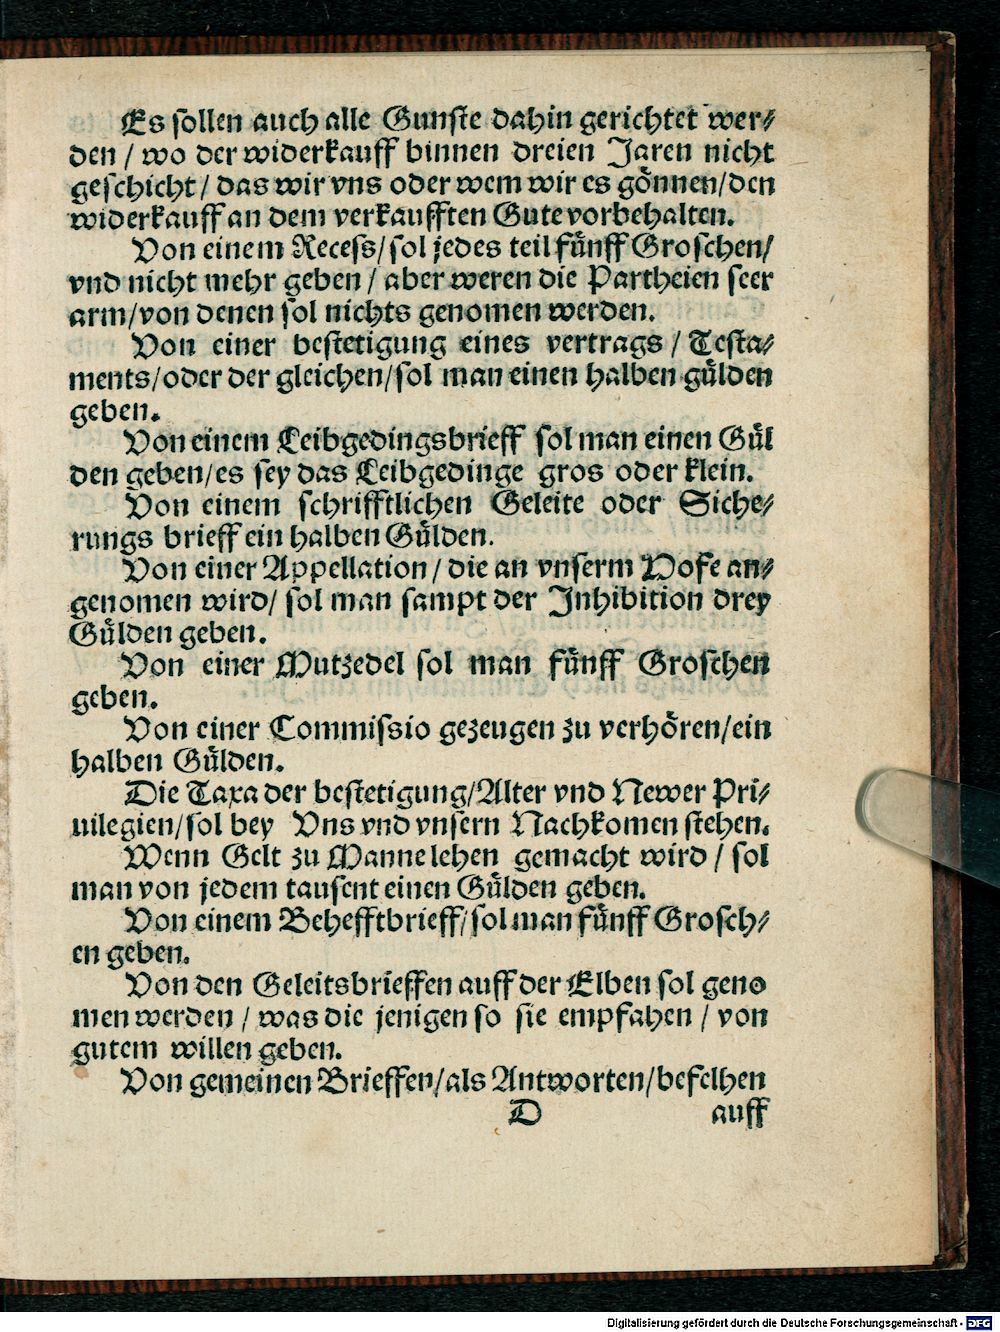 Es sollen auch alle Gunste dahin gerichtet wer⸗
den / wo der widerkauff binnen dreien Jaren nicht
geschicht / das wir vns oder wem wir es gönnen/den
widerkauff an dem verkaufften Gute vorbehalten.
Von einem Recess/sol jedes teil fünff Groschen/
vnd nicht mehr geben / aber weren die Partheien seer
arm/von denen sol nichts genomen werden.
Von einer bestetigung eines vertrags / Testa⸗
ments/oder der gleichen/sol man einen halben gülden
geben.
Von einem Leibgedingsbrieff sol man einen Gül
den geben/es sey das Leibgedinge gros oder klein.
Von einem schrifftlichen Geleite oder Siche⸗
rungs brieff ein halben Gülden.
Von einer Appellation / die an vnserm Hofe an⸗
genomen wird/ sol man sampt der Inhibition drey
Gülden geben.
Von einer Mutzedel sol man fünff Groschen
geben.
Von einer Commissio gezeugen zu verhören/ein
halben Gülden.
Die Taxa der bestetigung/Alter vnd Newer Pri⸗
uilegien/sol bey Vns vnd vnsern Nachkomen stehen.
Wenn Gelt zu Mannelehen gemacht wird / sol
man von jedem tausent einen Gülden geben.
Von einem Behefftbrieff/sol man fünff Grosch⸗
en geben.
Von den Geleitsbrieffen auff der Elben sol geno
men werden / was die jenigen so sie empfahen / von
gutem willen geben.
Von gemeinen Brieffen/als Antworten/befelhen
D auff
Digitalisierung gefördert durch die Deutsche Forschungsgemeinschaft - DFG